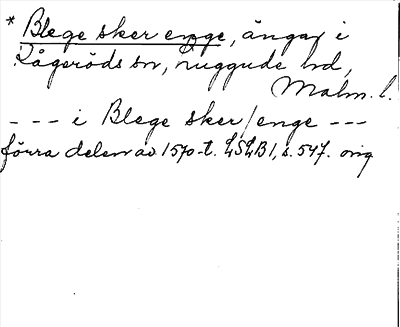 * Blege sker enge, ängar i
Rågeröds sn, ruggude hd,
Malm. l.
--- i Blege sker/enge ---
förra delen av 1570-t. LSLB 1, s. 547. orig